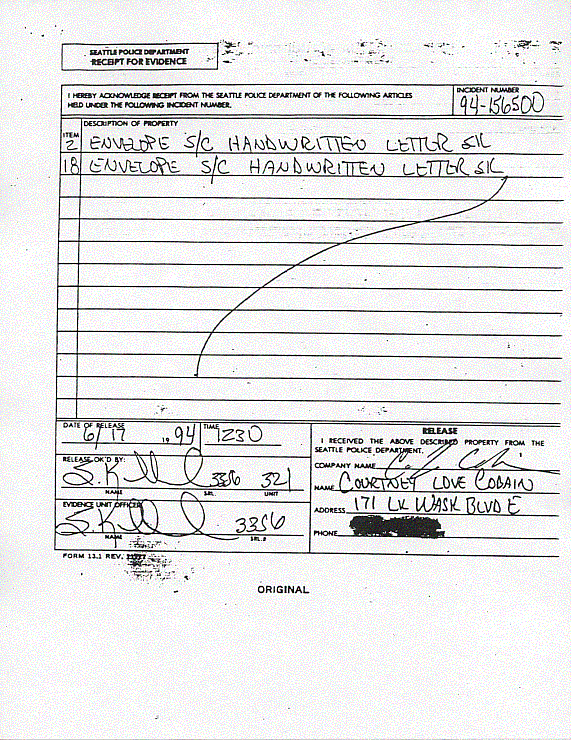 SEATTLE POLICE DEPARTMENT
RECEIPT FOR EVIDENCE
I HEREBY ACKNOWLEDGE RECEIPT FROM THE SEATTLE POLICE DEPARTMENT OF THE FOLLOWING ARTICLES
HELD UNDER THE FOLLOWING INCIDENT NUMBER.
INCIDENT NUMBER
94-156500
ITEM
DESCRIPTION OF PROPERTY
2 ENVELOPE S/C HANDWRITTEN LETTER
18 ENVELOPE S/C HANDWRITTEN LETTER
DATE OF RELEASE
6/17 1994
TIME
1230
RELEASE OK'D BY:
3356 321
NAME SRL. UNIT
EVIDENCE UNIT OFFICER
3356
NAME SRL.#
RELEASE
I RECEIVED THE ABOVE DESCRIBED PROPERTY FROM THE
SEATTLE POLICE DEPARTMENT.
COMPANY NAME
NAME COURTNEY LOVE COBAIN
ADDRESS 171 LK WASH BLVD E
PHONE
FORM 13.1 REV.
ORIGINAL